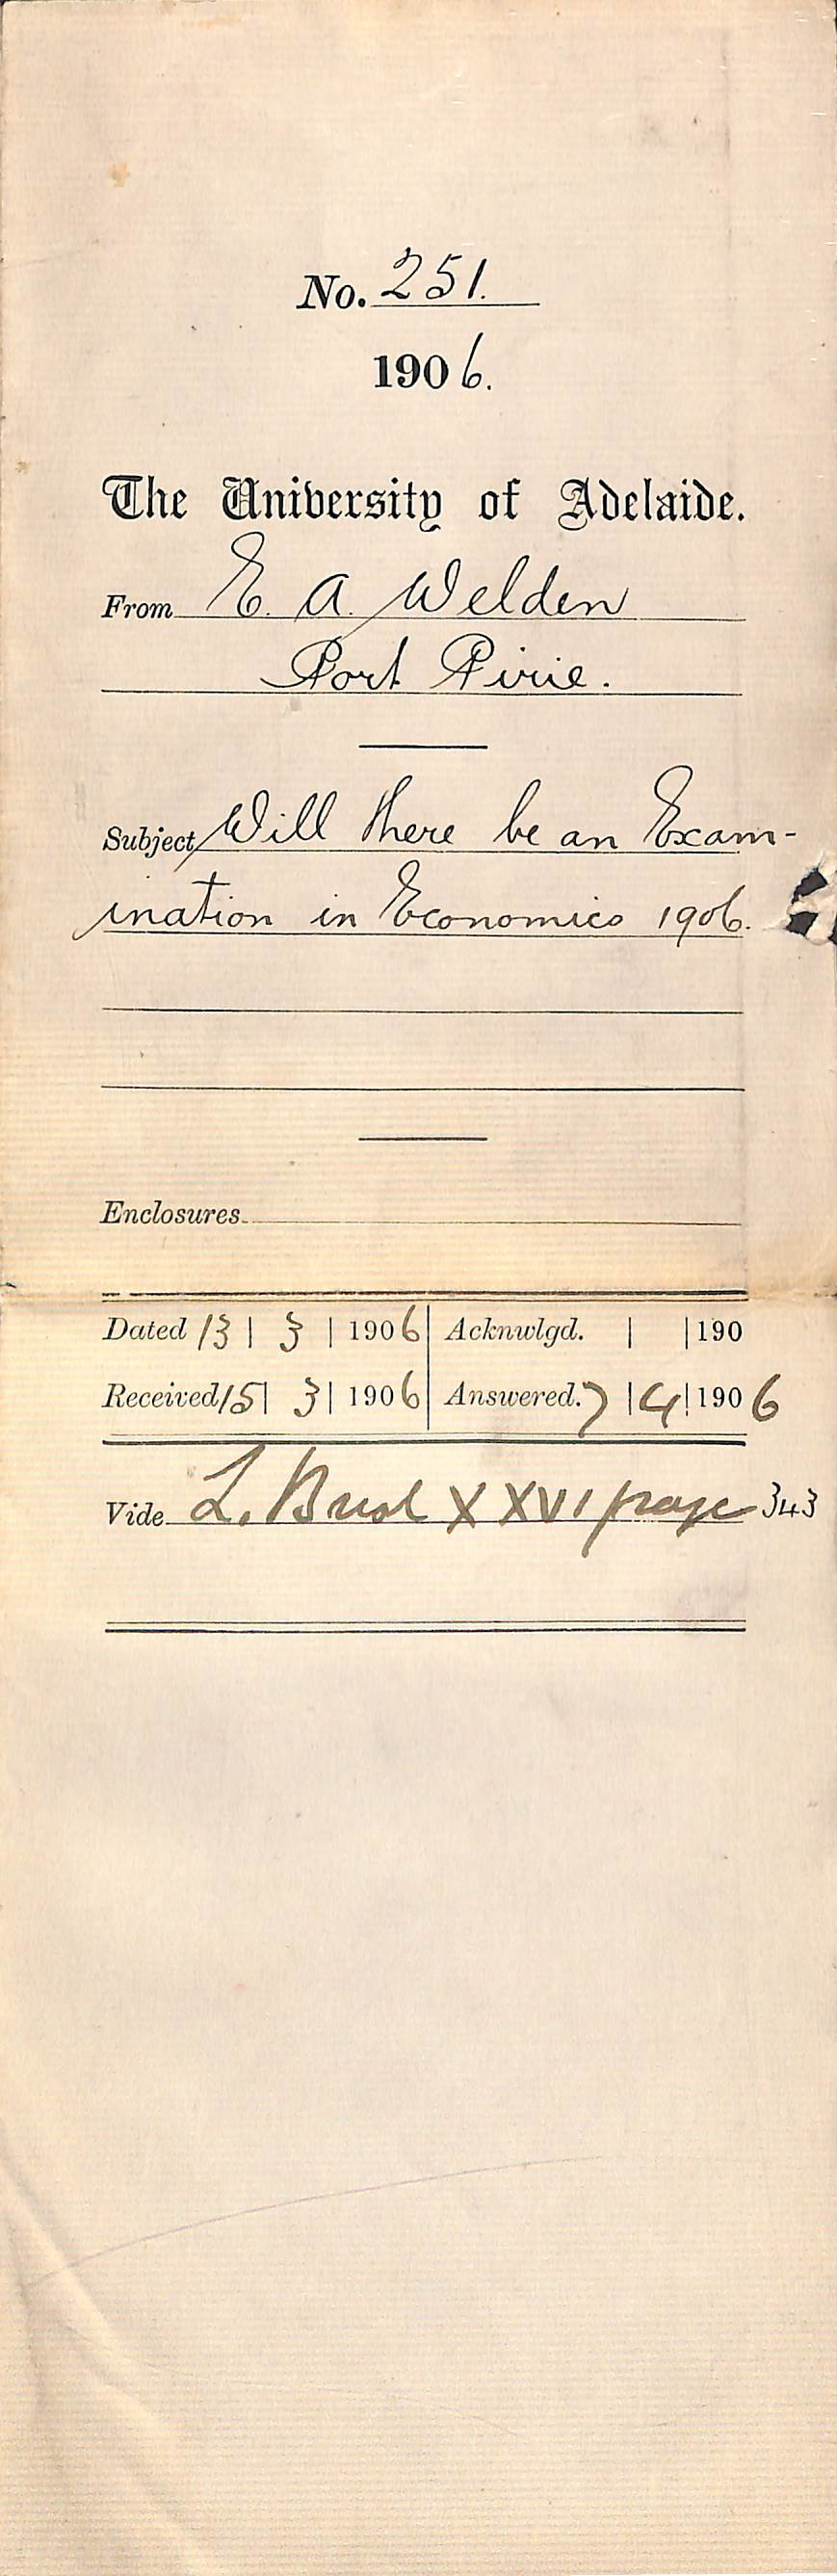 No. 251.
1906.
The University of Adelaide.
From E. A. Welden
Port Pirie.
Subject Will there be an Exam-
ination in Economics 1906.
Enclosures
Dated 13 | 3 | 1906 Acknwlgd. | | 190
Received 15 | 3 | 1906 Answered. 7 | 4 | 1906
Vide L. XXVI page 343